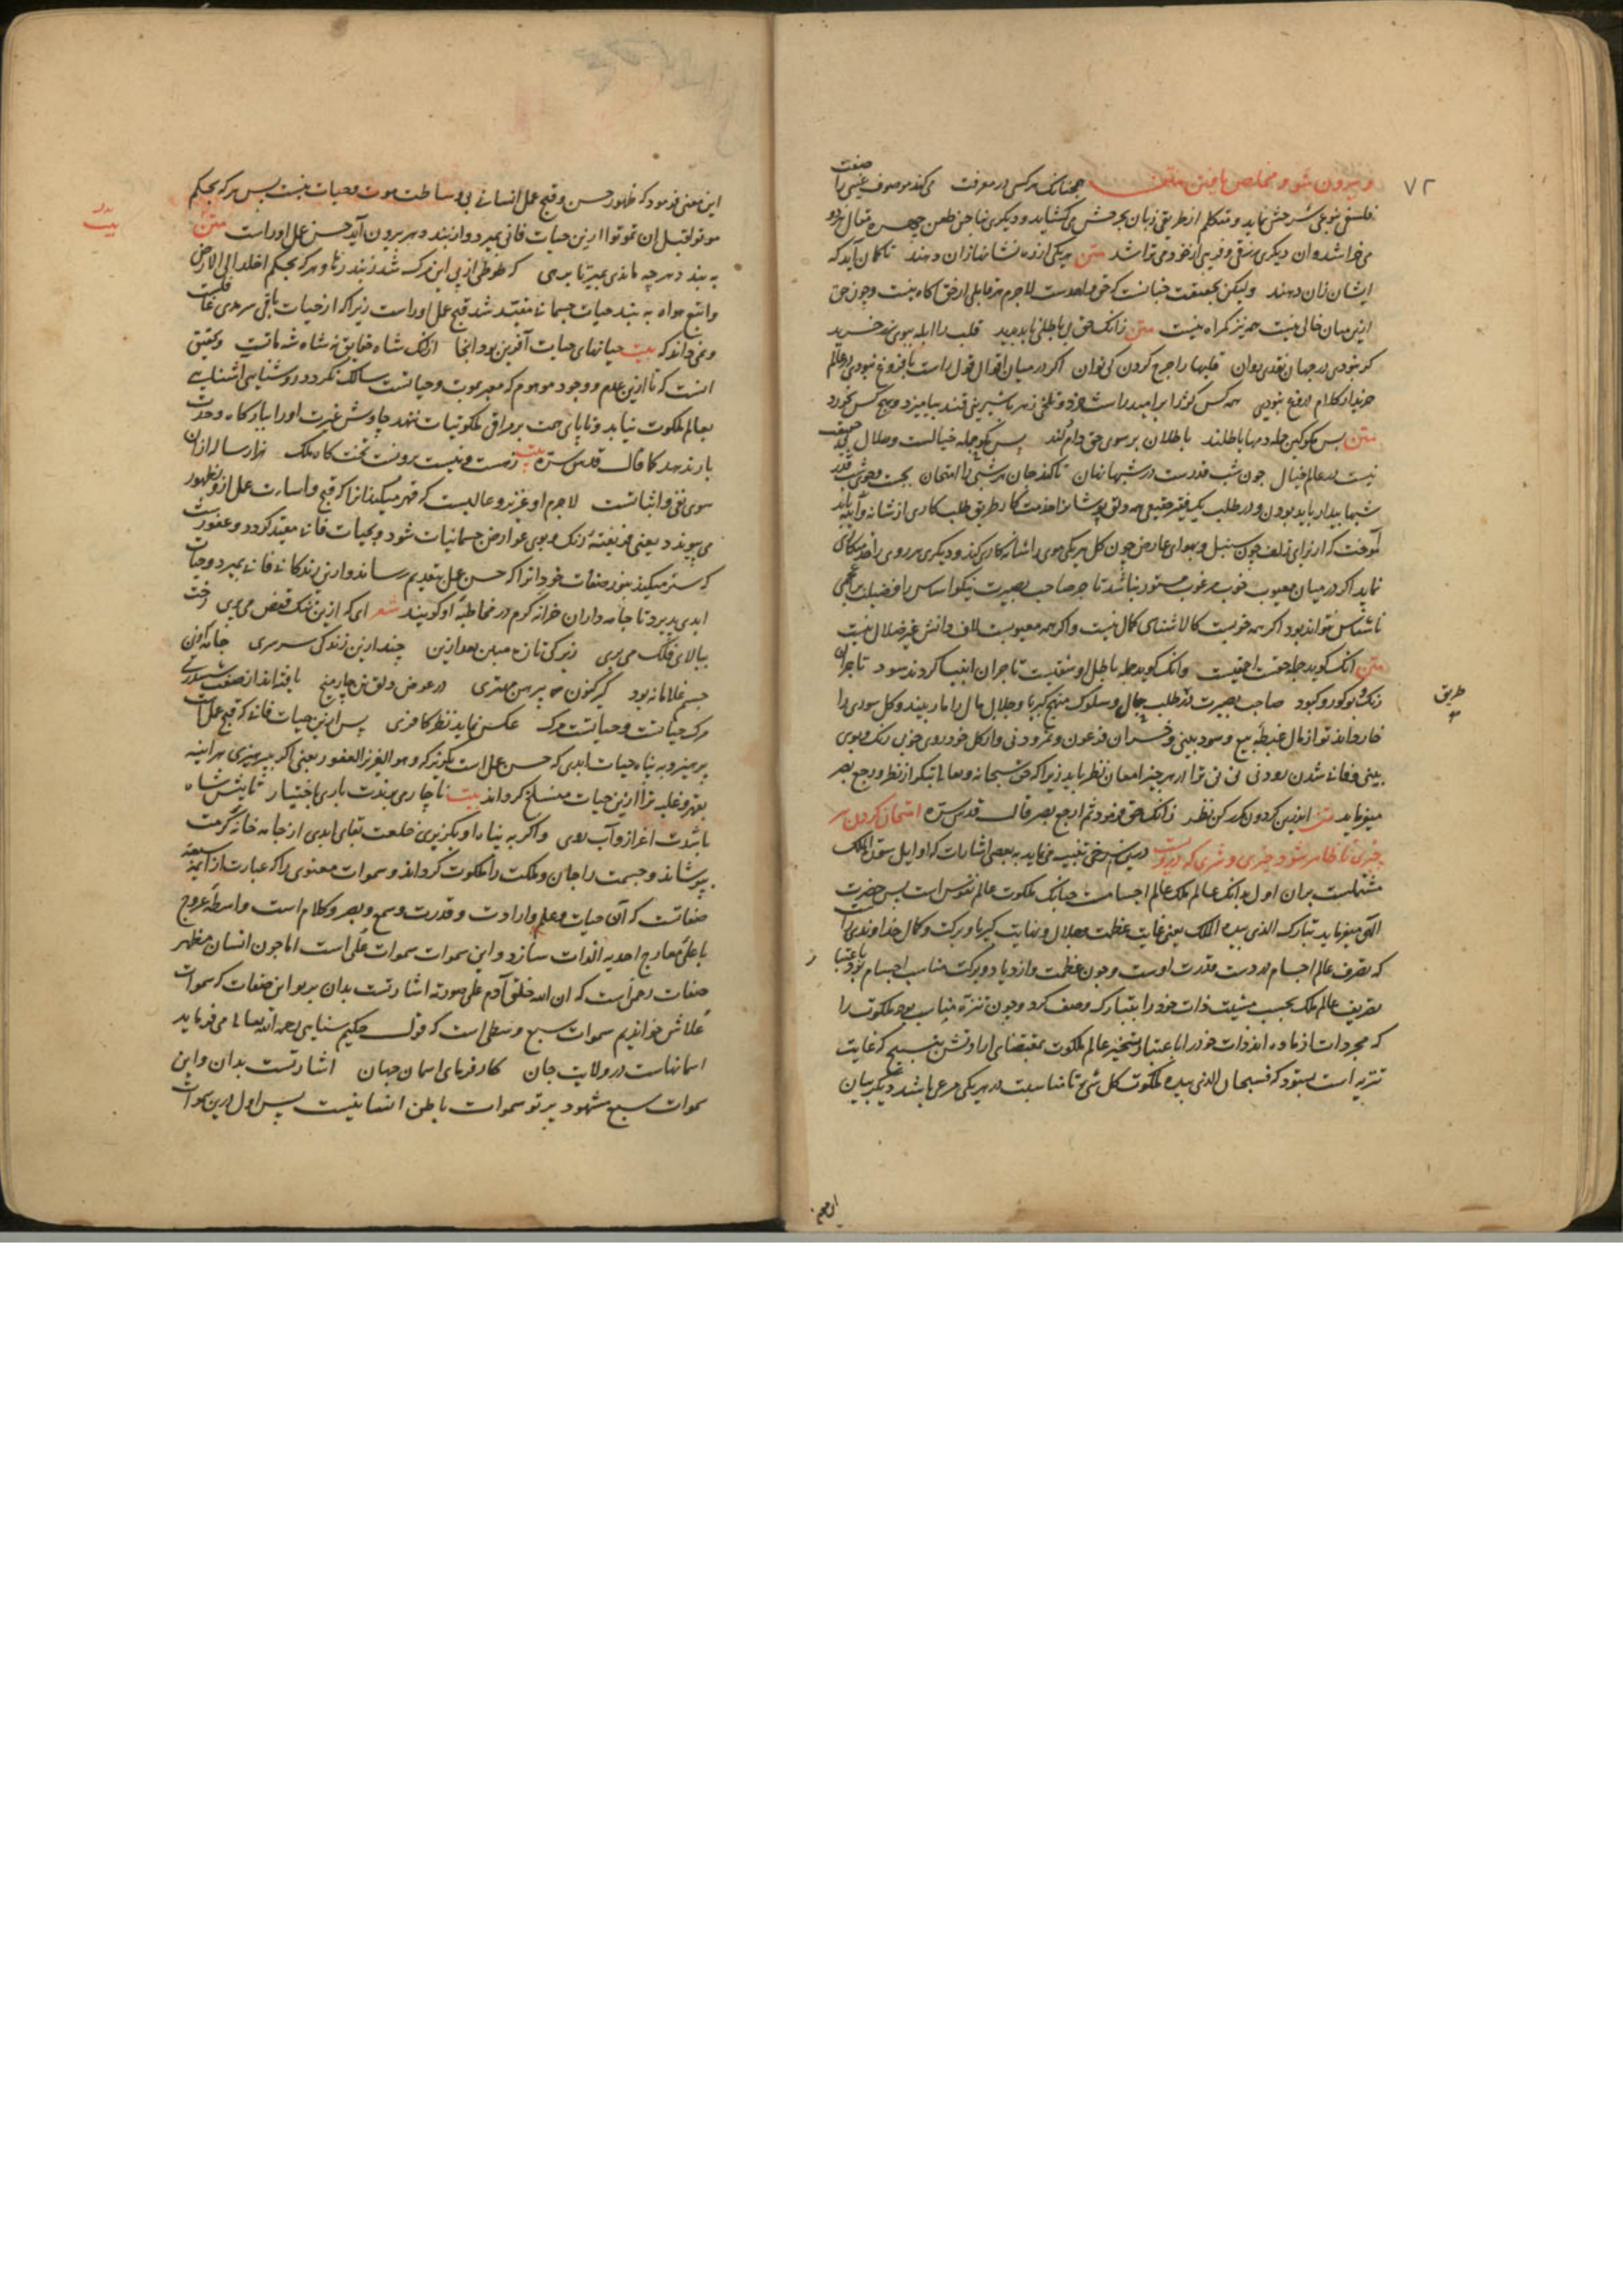 ۷۲
و بیرون شو و مخلص یافتن متن همچنانک هر کس در معرفت می‌کند موصوف غیبی را صفت
فلسفی نوعی شرحش نماید و متکلم از طریقی زبان بجرحش می‌گشاید و دیگری بناخن طعن چهره مقال هر دو
می‌خراشد و آن دیگری زرقی و فریبی از خود می‌تراشد متن هر یکی از ره نشانها زان دهند تا گمان آید که
ایشان زان دهند ولیکن بحقیقت چنانست که حق واحدست لاجرم هر قابلی از حق آگاه نیست و چون حق
ازین میان خالی نیست همه نیز گمراه نیست متن زانک حق بی باطلی ناید پدید قلب را ابله ببوی زر خرید
گر نبودی در جهان نقدی روان قلبها را خرج کردن کی توان اگر در میان اقوال قول راست با فروغ نبودی در عالم
خریدار کلام دروغ نبودی همه کس کژ را بر امید راست خرد و تلخی زهر با شیرینی قند بیامیزد و هیچ کس نخورد
متن پس مگو کین جمله دمها باطلند باطلان بر بوی حق دام دلند پس مگو جمله خیالست و ضلال بی حقیقت
نیست در عالم خیال چون شب قدرست در شبها نهان تا کند جان هر شبی را امتحان بجست و جوی شب قدر
شبها بیدار باید بودن و در طلب یک فقیر حقیقی همه دلق پوشانرا خدمت کار طریق طلب کاری از شانه و آینه باید
آموخت که از برای زلف چون سنبل و بهوای عارض چون گل هر یکی موی را شانه کاری کند و دیگری هر روی را خدمتکاری
نماید اگر در میان معیوب خوب مرغوب مستور نباشد تاجر صاحب بصیرت نیکو اساس را فضیلت بر اعمی
ناشناس نتواند بود اگر همه خوبیست کالا شناسی کمال نیست و اگر همه معیوبست لاف دانش غیر ضلال نیست
متن آنک گوید جمله حقست احمقیست وانک گوید جمله باطل او شقیست تاجران انبیا کردند سود تاجران
رنگ و بو کور و کبود صاحب بصیرت در طلب جمال و سلوک منهج کبریا و جلال مال را مار بیند و گل سوری را
طریق
خار داند تو از مال غبطه بیع و سود بینی و خسران فرعون و نمرود نی و از گل خودروی خوب رنگ و بوی
بینی و فانی شدن زود نی نی ترا در هر چیز امعان نظر باید زیرا که حق سبحانه و تعالی بتکرار نظر و رجع بصر
میفرماید متن اندرین گردون مکرر کن نظر زانک حق فرمود ثم ارجع بصر قال قدس سره امتحان کردن هر
چیزی تا ظاهر شود خیری و شری که در ویست درین سرخی تنبیه می‌نماید به بعضی اشارات که اوایل سورة الملک
مشتملست بر آن اول بدانک عالم ملک عالم اجسامست چنانک ملکوت عالم نفوس است پس حضرت
الهی میفرماید تبارک الذی بیده الملک یعنی غایت عظمت و جلال و نهایت کبریا و برکت و کمال خداوندی راست
که تصرف عالم اجسام در دست قدرت اوست و چون عظمت و ازدیاد و برکت مناسب اجسام بود باعتبار
تصریف عالم ملک بحسب مشیت ذات خود را بتبارک وصف کرد و چون تنزه مناسب بود ملکوت را
که مجردات از ماده‌اند ذات خود را باعتبار تسخیر عالم ملکوت بمقتضای ارادتش بتسبیح که غایت
تنزیه است بستود که فسبحان الذی بیده ملکوت کل شیء تا مناسبت در هر یکی مرعی باشد دیگر بیان
این معنی فرمود که ظهور حسن و قبح عمل انسانی بی وساطت موت و حیات نیست پس هر که بحکم
موتوا قبل ان تموتوا ازین حیات فانی بمیرد و از بند دهر برون آید حسن عمل او راست متن
بیت
به بند دهر چه ماندی بمیر تا برهی که طوطی از پی این مرگ شد ز بند رها و هر که بحکم اخلد الی الارض
واتبع هواه به بند حیات جسمانی مقید شد قبح عمل او راست زیرا که از حیات باقی سرمدی غافلست
و نمی‌داند که بیت حیاتهای حیات آفرین بود آنجا ازانک شاه حقایق نه شاه شه ماتست و یقین
آنست که تا ازین عدم و وجود موهوم که معبر بموت و حیاتست سالک نگردد روشنایی آشنایی
بعالم ملکوت نیابد و تا پای همت بر مراقی ملکوتیات ننهد چاوش غیرت او را ببارگاه وحدت
بار ندهد کما قال قدس سره بیت ز هست و نیست برونست تختگاه ملک هزار ساله ازان
سوی نفی و اثباتست لاجرم او عزیز و عالیست که قهر میکند آنرا که قبح و اساءت عمل ازو بظهور
می‌پیوندد یعنی فریفته رنگ و بوی عوارض جسمانیات شود و بحیات فانی مقید گردد و غفورست
که ستر میکند بنور صفات خود آنرا که حسن عمل بتقدیم رساند و ازین زندگانی فانی بمیرد و حیات
ابدی پذیرد تا جامه داران خزانه کرم در مخاطبه او گویند شعر ای که ازین تنگ قفس می‌پری رخت
ببالای فلک می‌بری زندگی تازه ببین بعد ازین چند ازین زندگی سرسری جامه این
جسم غلامانه بود گیر کنون پیرهن مهتری در عوض دلق تن چار میخ بافته‌اند از صفت ششتری
مرگ حیاتست و حیاتست مرگ عکس نماید نظر کافری پس ازین حیات فانی که قبح عمل است
بپرهیز و به پناه حیات ابدی که حسن عمل است بگریز که و هو العزیز الغفور یعنی اگر بپرهیزی هر آینه
بقهر و غلبه ترا ازین حیات منسلخ گرداند بیت ناچاری برندت باری باختیار تا پیش شاه
باشدت اعزاز و آب روی و اگر به پناه او بگریزی خلعت بقای ابدی از جامه خانه کرمت
بپوشاند و جسمت را جان و ملکت را ملکوت گرداند و سموات معنوی را که عبارت از ائمه سبعه
صفاتست که آن حیات و علم و ارادت و قدرت و سمع و بصر و کلام است واسطه عروج
باعلی معارج احدیه الذات سازد و این سموات سموات علی است اما چون انسان مظهر
صفات رحمن است که ان الله خلق آدم علی صورته اشارتست بدان پرتو این صفات که سموات
علاش خواندیم سموات سبع وسطی است که قول حکیم سنایی رحمه الله تعالی می‌فرماید
آسمانهاست در ولایت جان کارفرمای آسمان جهان اشارتست بدان و این
سموات سبع مشهود پرتو سموات باطن انسانیست پس اول درین سموات